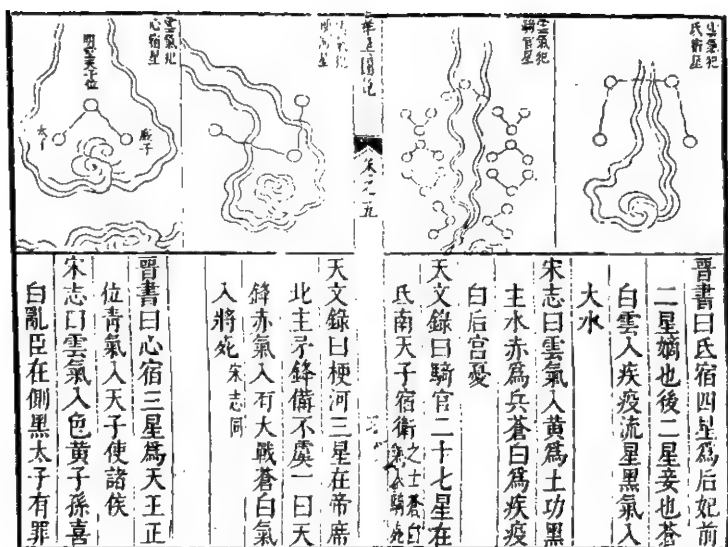 雲氣犯
氐宿星
雲氣犯
騎官星
卷之五
雲氣犯
心宿星
明堂天子位
太子
庶子
晉書曰氐宿四星爲后妃前
二星嫡也後二星妾也蒼
白雲入疾疫流星黑氣入
大水
宋志曰雲氣入黃爲土功黑
主水赤爲兵蒼白爲疾疫
白后宮憂
天文錄曰騎官二十七星在
氐南天子宿衛之士蒼白
天文錄曰梗河三星在帝席
北主矛鋒備不虞一曰天
鋒赤氣入有大戰蒼白氣
入將死宋志同
晉書曰心宿三星爲天王正
位青氣入天子使諸侯
宋志曰雲氣入色黃子孫喜
白亂臣在側黑太子有罪